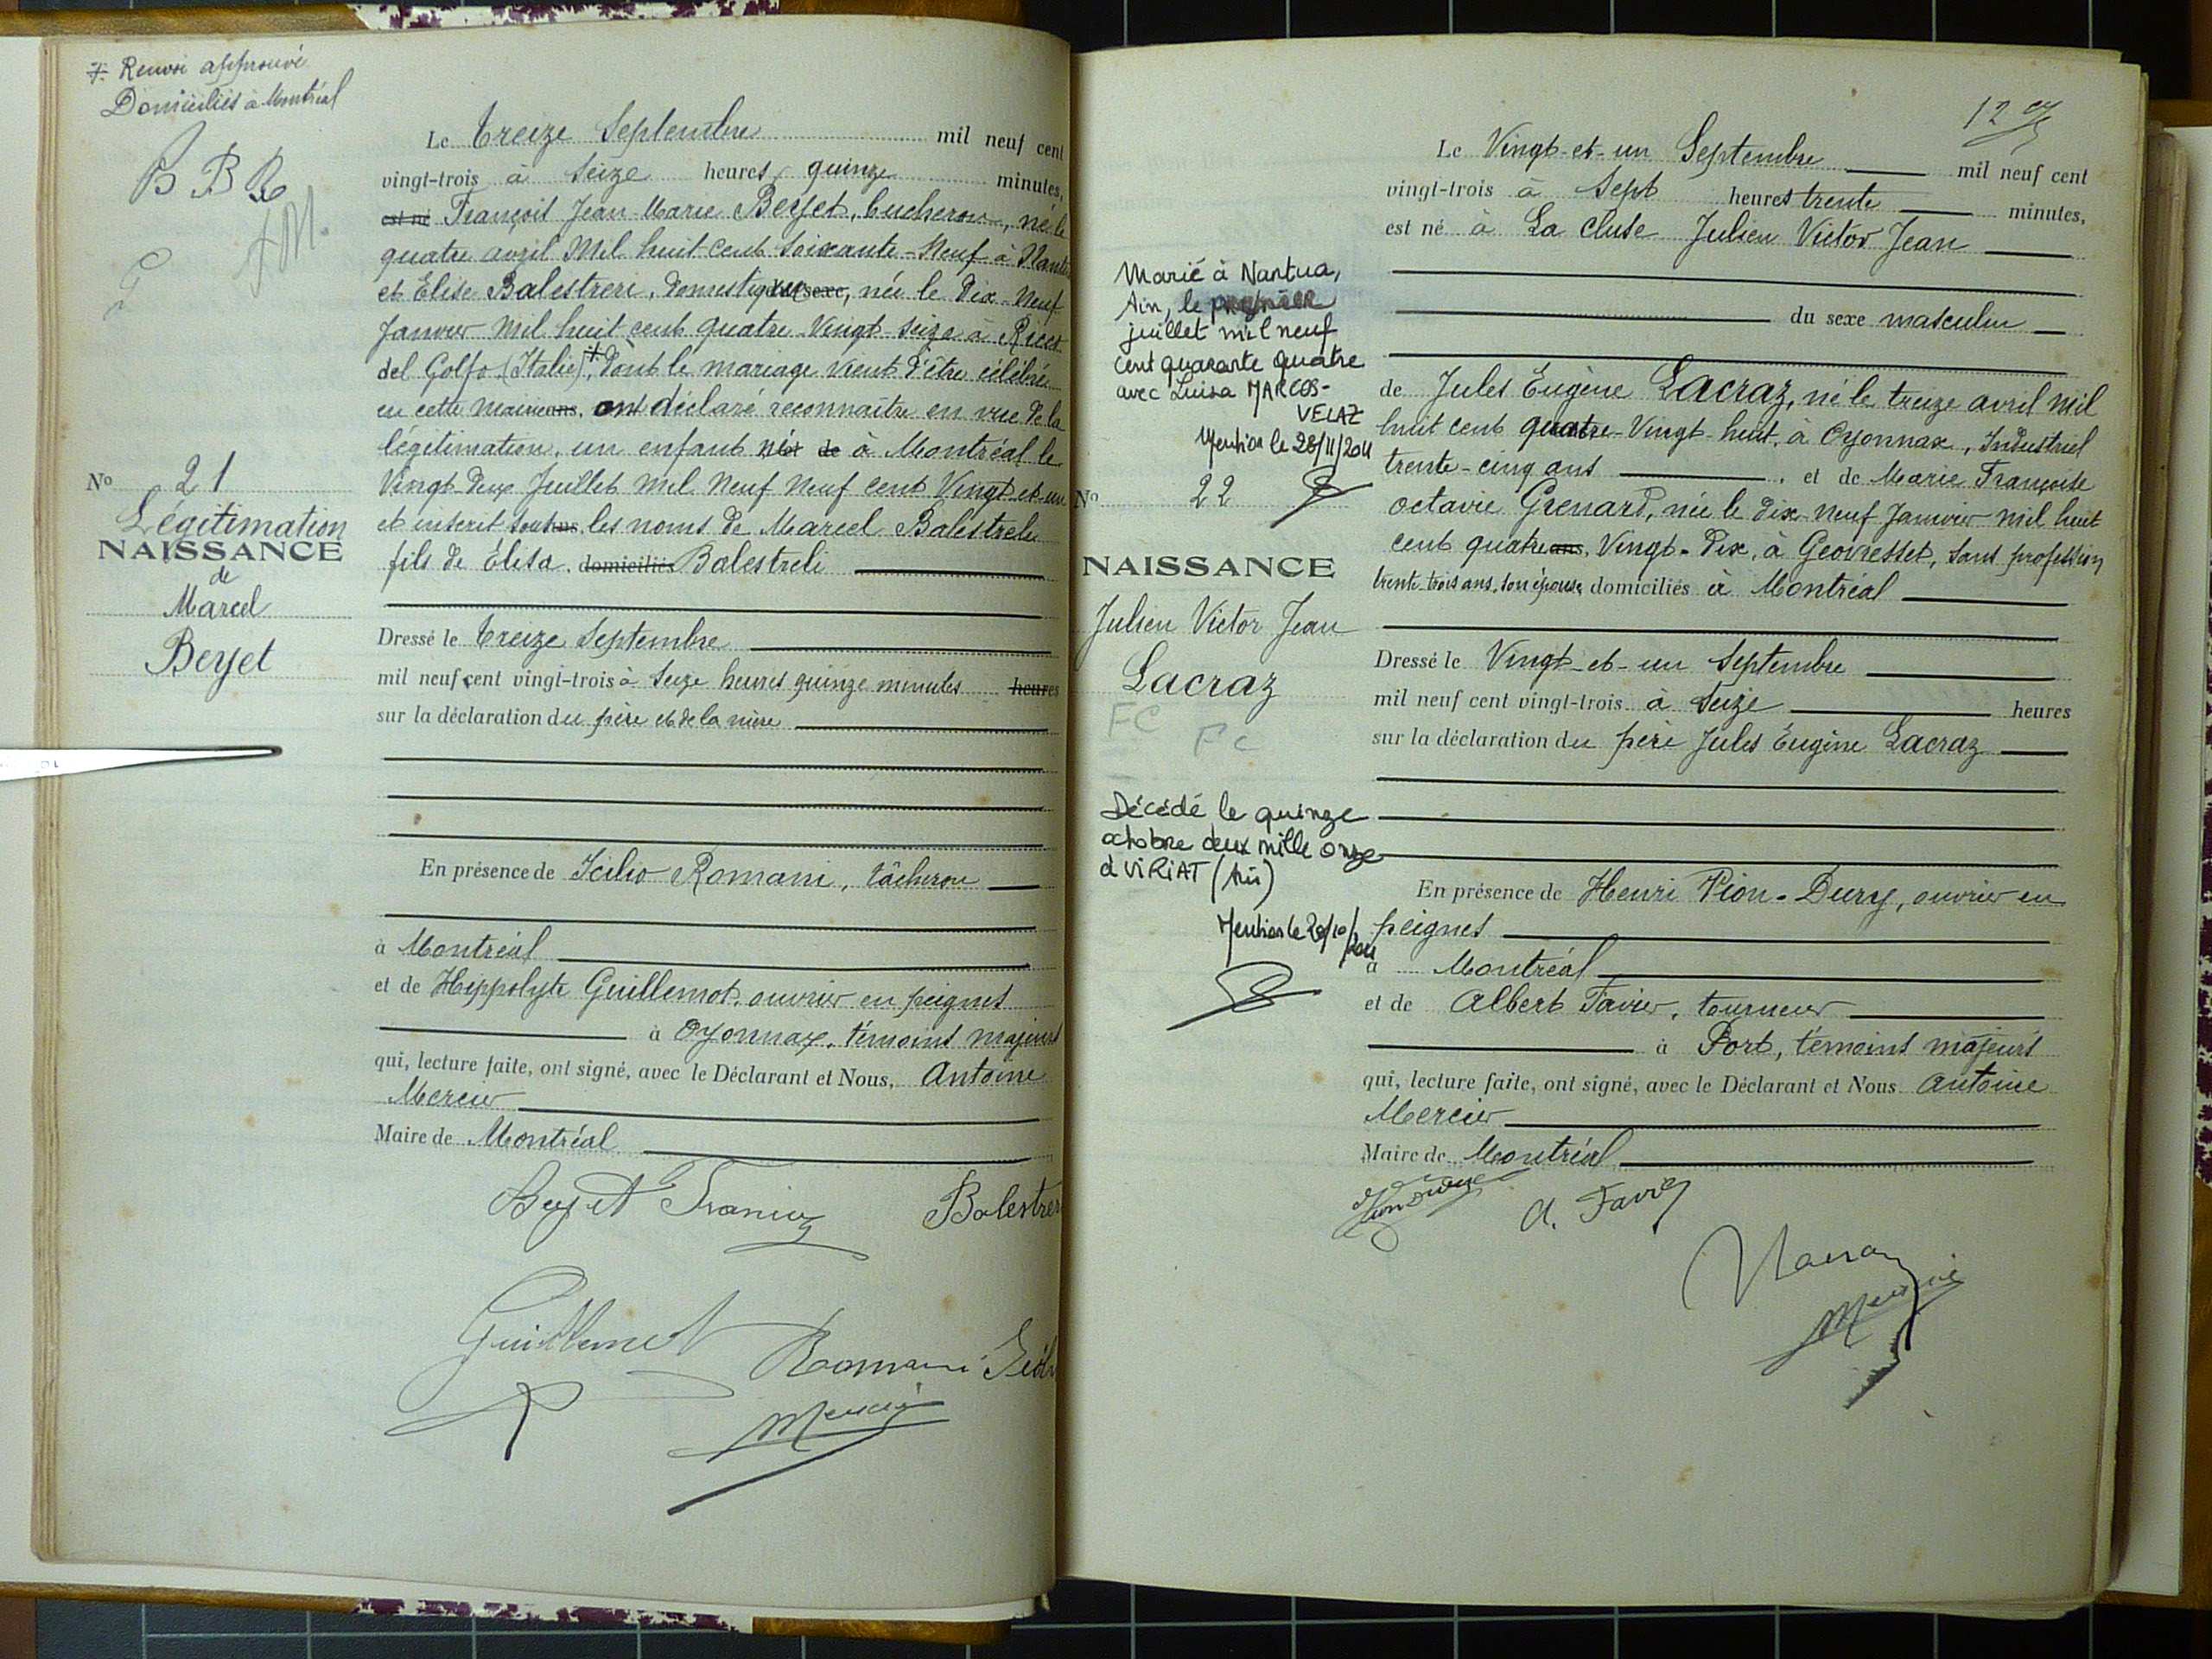 Renvoi approuvé
Domiciliés à Montréal
B B R
Le treize Septembre mil neuf cent
vingt-trois à seize heures quinze minutes,
est né François Jean Marie Beyet, bucheron, né le
quatre avril mil huit cent soixante-neuf à
et Elise Balestreri, domestique sexe, née le dix-neuf
Janvier mil huit cent quatre-vingt-seize à
del Golfo (Italie), dont le mariage vient d'être célébré
en cette mairie ans, ont déclaré reconnaître en vue de la
légitimation, un enfant né de à Montréal le
Vingt-deux Juillet mil neuf neuf cent Vingt-et-un
et inscrit sous les noms de Marcel Balestreli
fils de Élisa, domiciliés Balestreli
No 21
Légitimation
NAISSANCE
de
Marcel
Beyet
Dressé le treize Septembre
mil neuf cent vingt-trois à seize heures quinze minutes heures
sur la déclaration du père et de la mère
En présence de Icilio Romani, tâcheron
à Montréal
et de Hippolyte Guillemot, ouvrier en peignes
à Oyonnax, témoins majeurs
qui, lecture faite, ont signé, avec le Déclarant et Nous, Antoine
Mercier
Maire de Montréal
Beyet
Balestrer
Guillemot
Romani
Mercier
12
Le Vingt-et-un Septembre mil neuf cent
vingt-trois à sept heures trente minutes,
est né à La Cluse Julien Victor Jean
du sexe masculin
de Jules Eugène Lacraz, né le treize avril mil
huit cent quatre-vingt-huit, à Oyonnax, Industriel
trente-cinq ans, et de Marie Françoise
Octavie Grenard, née le dix-neuf Janvier mil huit
cent quatre ans, Vingt-dix, à Géovresset, sans profession
trente-trois ans, son épouse, domiciliés à Montréal
Marié à Nantua,
Ain, le premier
juillet mil neuf
cent quarante quatre
avec Luisa MARCOS-
VELAZ
Mention le 28/11/2011
No 22
NAISSANCE
Julien Victor Jean
Lacraz
FC
FC
Décédé le quinze
octobre deux mille onze
à VIRIAT (Ain)
Mention le 20/10/2011
Dressé le Vingt-et-un Septembre
mil neuf cent vingt-trois à seize heures
sur la déclaration du père Jules Eugène Lacraz
En présence de Henri Pion-Dury, ouvrier en
peignes
à Montréal
et de Albert Favier, tourneur
à Port, témoins majeurs
qui, lecture faite, ont signé, avec le Déclarant et Nous Antoine
Mercier
Maire de Montréal
A. Favier
Mercier